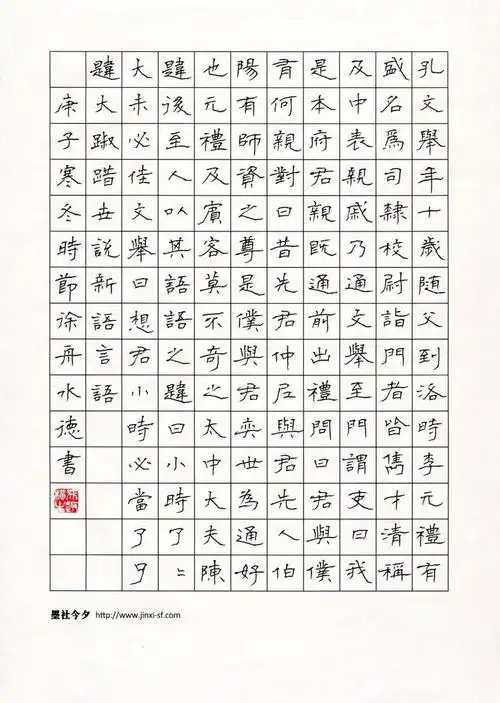 孔文舉年十歲随父到洛時李元禮有
盛名爲司隸校尉詣門者皆儁才清稱
及中表親戚乃通文舉至門謂吏曰我
是本府君親既通前出禮問曰君與僕
有何親對曰昔先君仲尼與君先人伯
陽有師資之尊是僕與君奕世為通好
也元禮及賓客莫不奇之太中大夫陳
韙後至人以其語語之韙曰小時了〻
大未必佳文舉曰想君小時必當了了
韙大踧踖世說新語言語
庚子寒冬時節徐舟水德書
墨社今夕 http://www.jinxi-sf.com